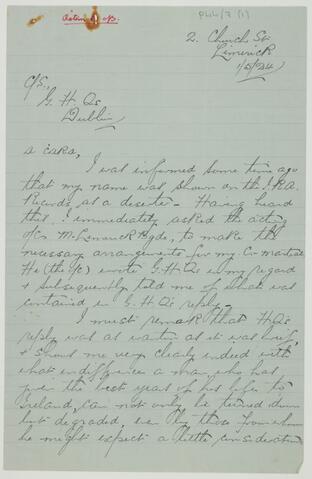 P44/7 (1)
2. Church St
Limerick
1/5/24
C/S.,
G. H. Qs
Dublin
a cara,
I was informed some time ago
that my name was shown on the I.R.A.
Records as a deserter. Having heard
this I immediately asked the acting
O/c M. Limerick Bgde, to make the
necessary arrangements for my C-martial
He (the O/C) wrote G.H.Qs in my regard
& subsequently told me of what was
contained in G.H.Qs reply.
I must remark that HQs
reply was as wanton as it was brief,
& shows me very clearly indeed with
what indifference a man, who has
given the best years of his life to
Ireland, can not only be turned down
but degraded, even by those from whom
he might expect a little consideration